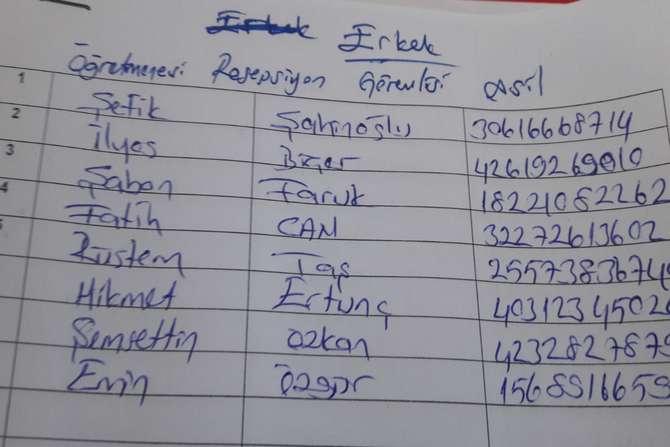 Erkek Erkek
Öğretmenevi Resepsiyon Görevlisi Asil
1
2 Şefik Şahinoğlu 30616668714
3 İlyas Biçer 42619269010
4 Şaban Faruk 18221082262
5 Fatih CAN 32272613602
Rüstem Taş 2557383674
Hikmet Ertunç 4031234502
Şemsettin Özkan 4232827879
Emin Özgür 1568816659